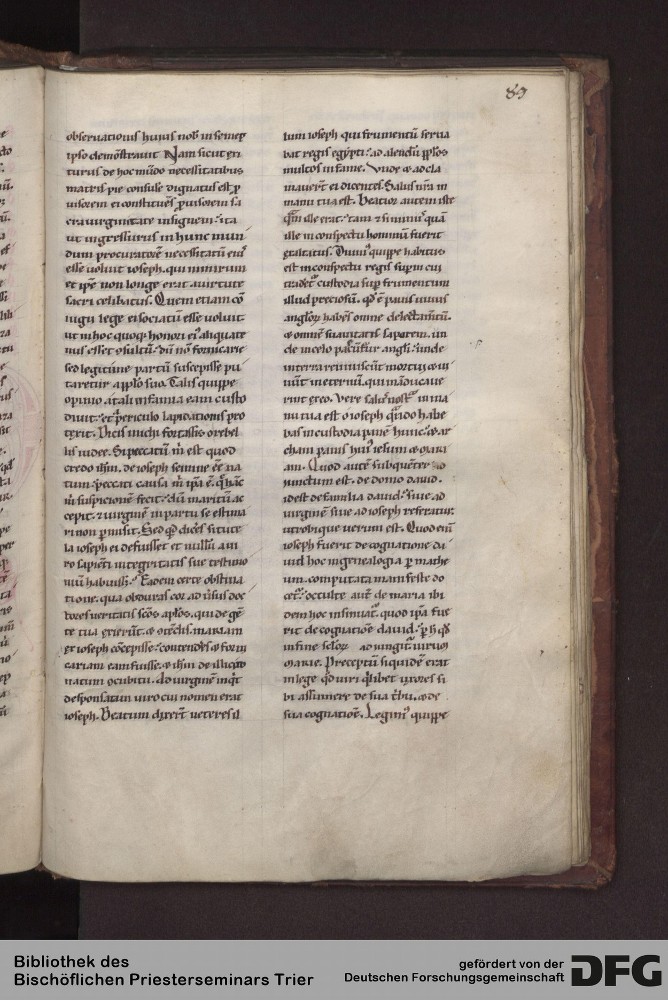 89
observationis huius nob in semep
ipso demonstravit Nam sicut en
turus de hoc mundo necessitatibus
matris pie consule dignatus est p
visorem ei constituens puisorem sa
cra virginitate insignem: ita
ut ingressurus in hunc mun
dum procuratorē necessitatū eius
esse voluit ioseph. qui nimirum
et ipse non longe erat a virtute
sacri celibatus. Quem etiam cō
iugii lege ei sociatū esse voluit
ut in hoc quoq honori ei aliquate
nus esset ɔsultū. dū nō fornicarie
sed legitime partū suscepisse pu
taretur a pplo suo. Talis quippe
opinio a tali infamia eam custo
divit. et periculo lapidationis pro
texit. Dicis michi fortassis o rebel
lis iudee. Si peccatū nō est quod
credo ihm. de ioseph semine eē na
tum. peccati causa
in suspicionem fecit. dū maritū ac
cepit. & virginē in partu se estima
ri non pmisit. Sed qd dices si tute
la ioseph ei defuisset et nullū a vi
ro sapienti integritatis sue testimo
niū habuisset. Eadem certe obstina
tione. qua obduras cor ad usus doc
tores veritatis scōs aplos. qui de gē
te tua exierūt. & ostendis. mariam
ex ioseph cōcepisse. contenderes & forni
cariam eam fuisse. & ihm de illicito
natum ɔcubitu. Ad virginē inqt
desponsatam viro cui nomen erat
ioseph. Beatum dixerūt veteres il
lum ioseph qui frumentū serva
bat regis egypti. ad alendū pplos
multos in fame. Unde & adcla
maverūt ei dicentes. Salus nra in
manu tua est. Beatior autem iste
qm ille erat. tam & si minus quā
ille in conspectu hominum fuerit
exaltatus. Dignus quippe habitus
est in conspectu regis supni cui
traderet custodia sup frumentum
illud preciosū. qd ē panis vivus
anglorum habens omne delectamtū.
& omnē suavitatis saporem. un
de in celo pascūtur angli. unde
in terra reviviscūt mortui & vi
vūt in eternū. qui manducave
rint ex eo. Vere salus nostra in ma
nu tua est o ioseph quādo habe
bas in custodia panē hunc. & ar
cham panis huius iesum & mari
am. Quod autē subsequēter ad
iunctum est. de domo david.
id est de familia david. sive ad
virginē sive ad ioseph referatur.
utrobique verum est. Quod enī
ioseph fuerit de cognatione da
vid hoc in genealogia p mathe
um computata manifeste do
cetr. occulte autē de maria ibi
dem hoc insinuatr. quod ipsa fue
rit de cognatiōe david. p h qd
in fine adiungit virum
marie. Preceptū siquidē erat
in lege qd viri qlibet uxores si
bi assumere de sua tribu. & de
sua cognatiōe. Legimus quippe
Bibliothek des
Bischöflichen Priesterseminars Trier
gefördert von der
Deutschen Forschungsgemeinschaft
DFG